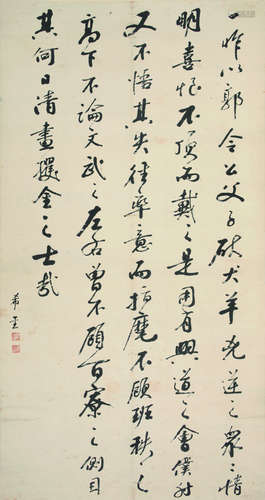 一昨以郭令公父子破犬羊兇逆之眾眾情
明喜恨不頂而戴之是用有興道之會僕射
又不悟其失徑率意而指麾不顧班秩之
高下不論文武之左右曾不顧百寮之側目
其何日清晝攫金之士哉
希